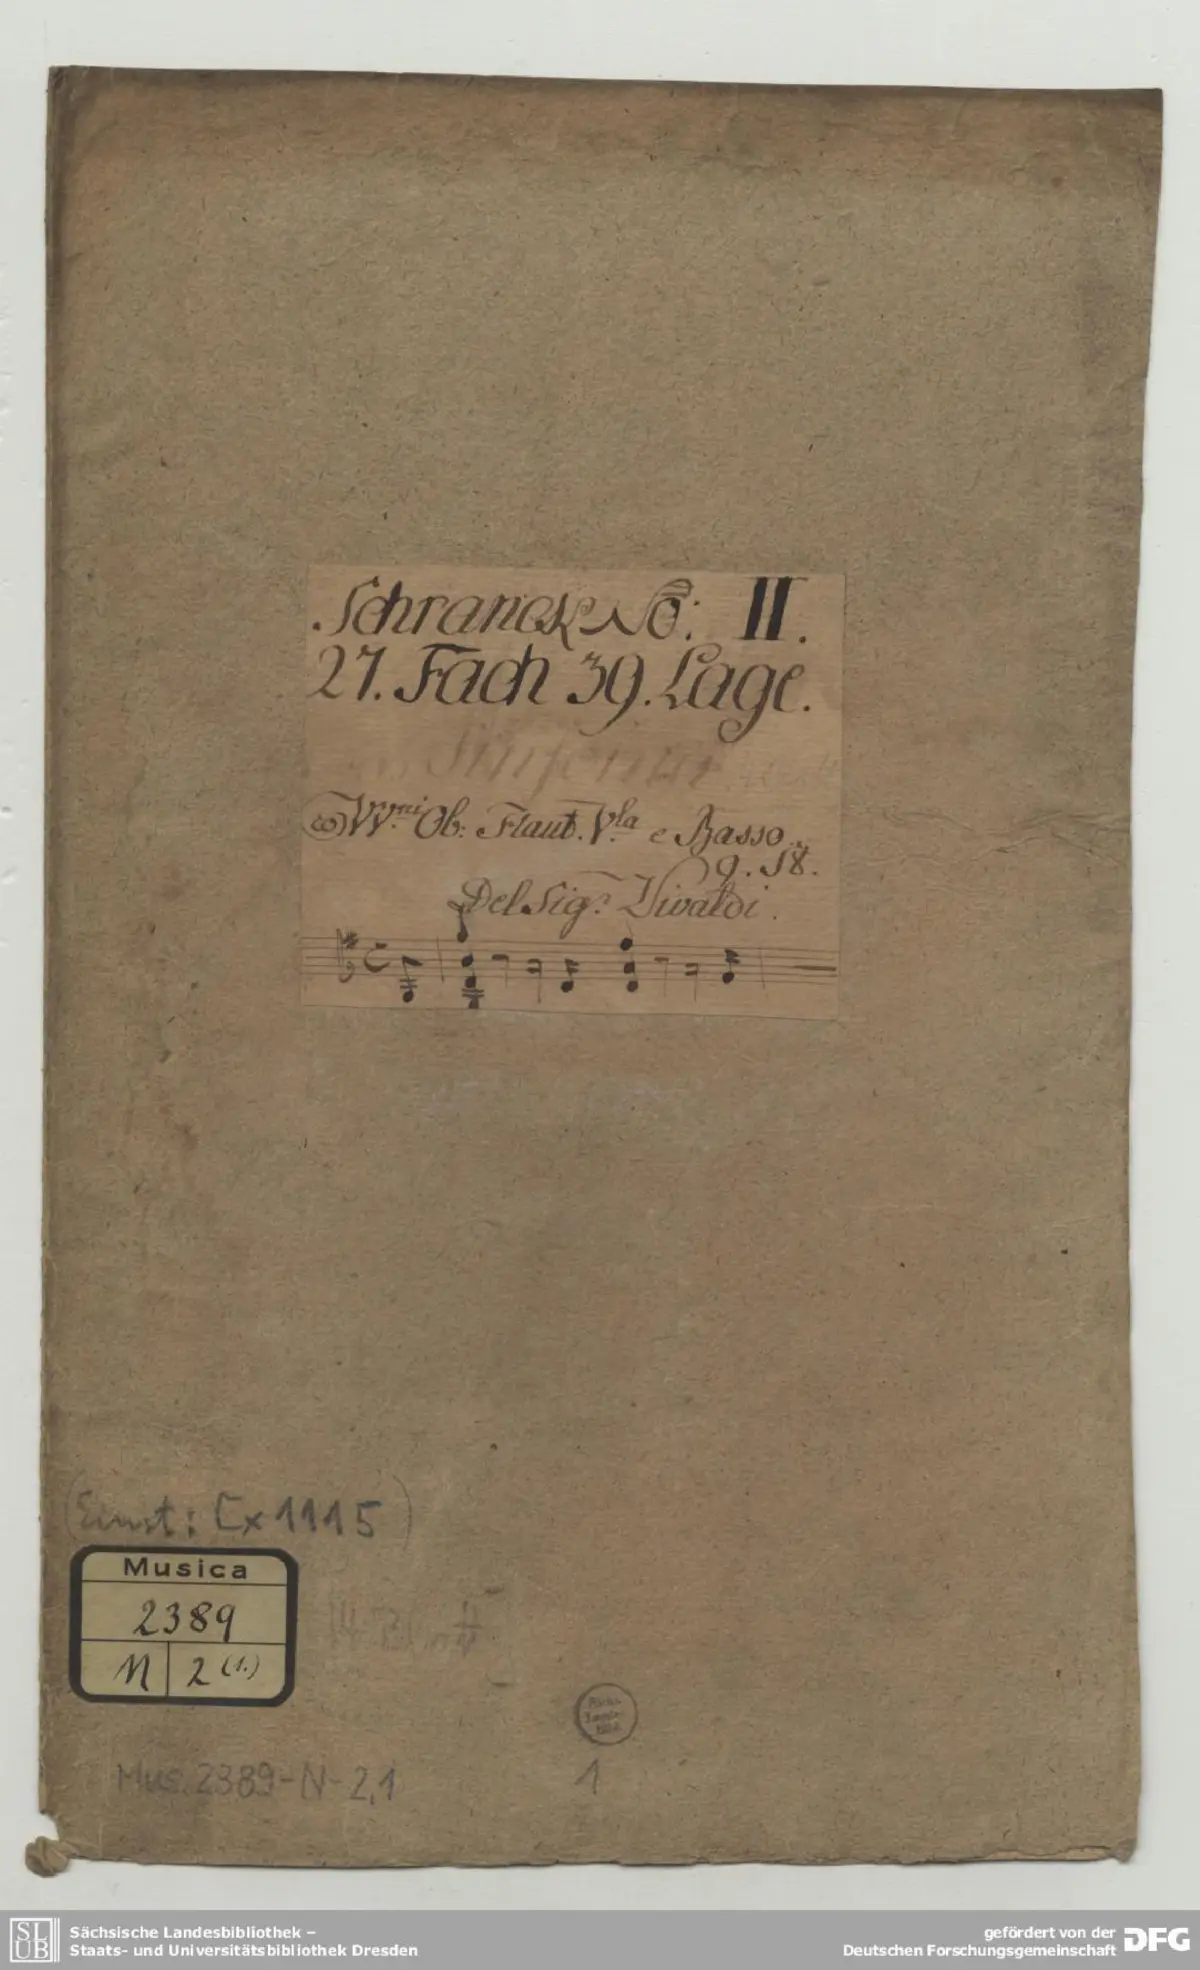 Schranck No: II.
27. Fach 39. Lage.
Sinfonia
co VV.ni Ob: Flaut. V.la e Basso
9. 18.
Del Sig.r Vivaldi.
(Einst: Cx 1115)
Musica
2389
N 2 (1.)
Mus. 2389-N-2,1
1
SLUB
Sächsische Landesbibliothek –
Staats- und Universitätsbibliothek Dresden
gefördert von der
Deutschen Forschungsgemeinschaft
DFG